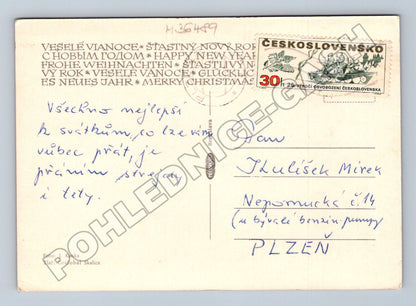 H36489
VESELÉ VIANOCE * ŠTASTNÝ NOVÝ ROK
С НОВЫМ ГОДОМ * HAPPY NEW YEAR
FROHE WEIHNACHTEN * ŠŤASTLIVÝ N
VÝ ROK * VESELÉ VÁNOCE * GLÜCKLIC
ES NEUES JAHR * MERRY CHRISTMAS
ČESKOSLOVENSKO
30h
VÝROČÍ OSVOBOZENÍ ČESKOSLOVENSKA
Všechno nejlepší
k svátkům, co lze vám
vůbec přát, je
přáním strejdy
i tety.
Pan
Mirek
Nepomucká č. 14
(u bývalé benzin pumpy)
PLZEŇ
Skalica
POHLEDNICE-G